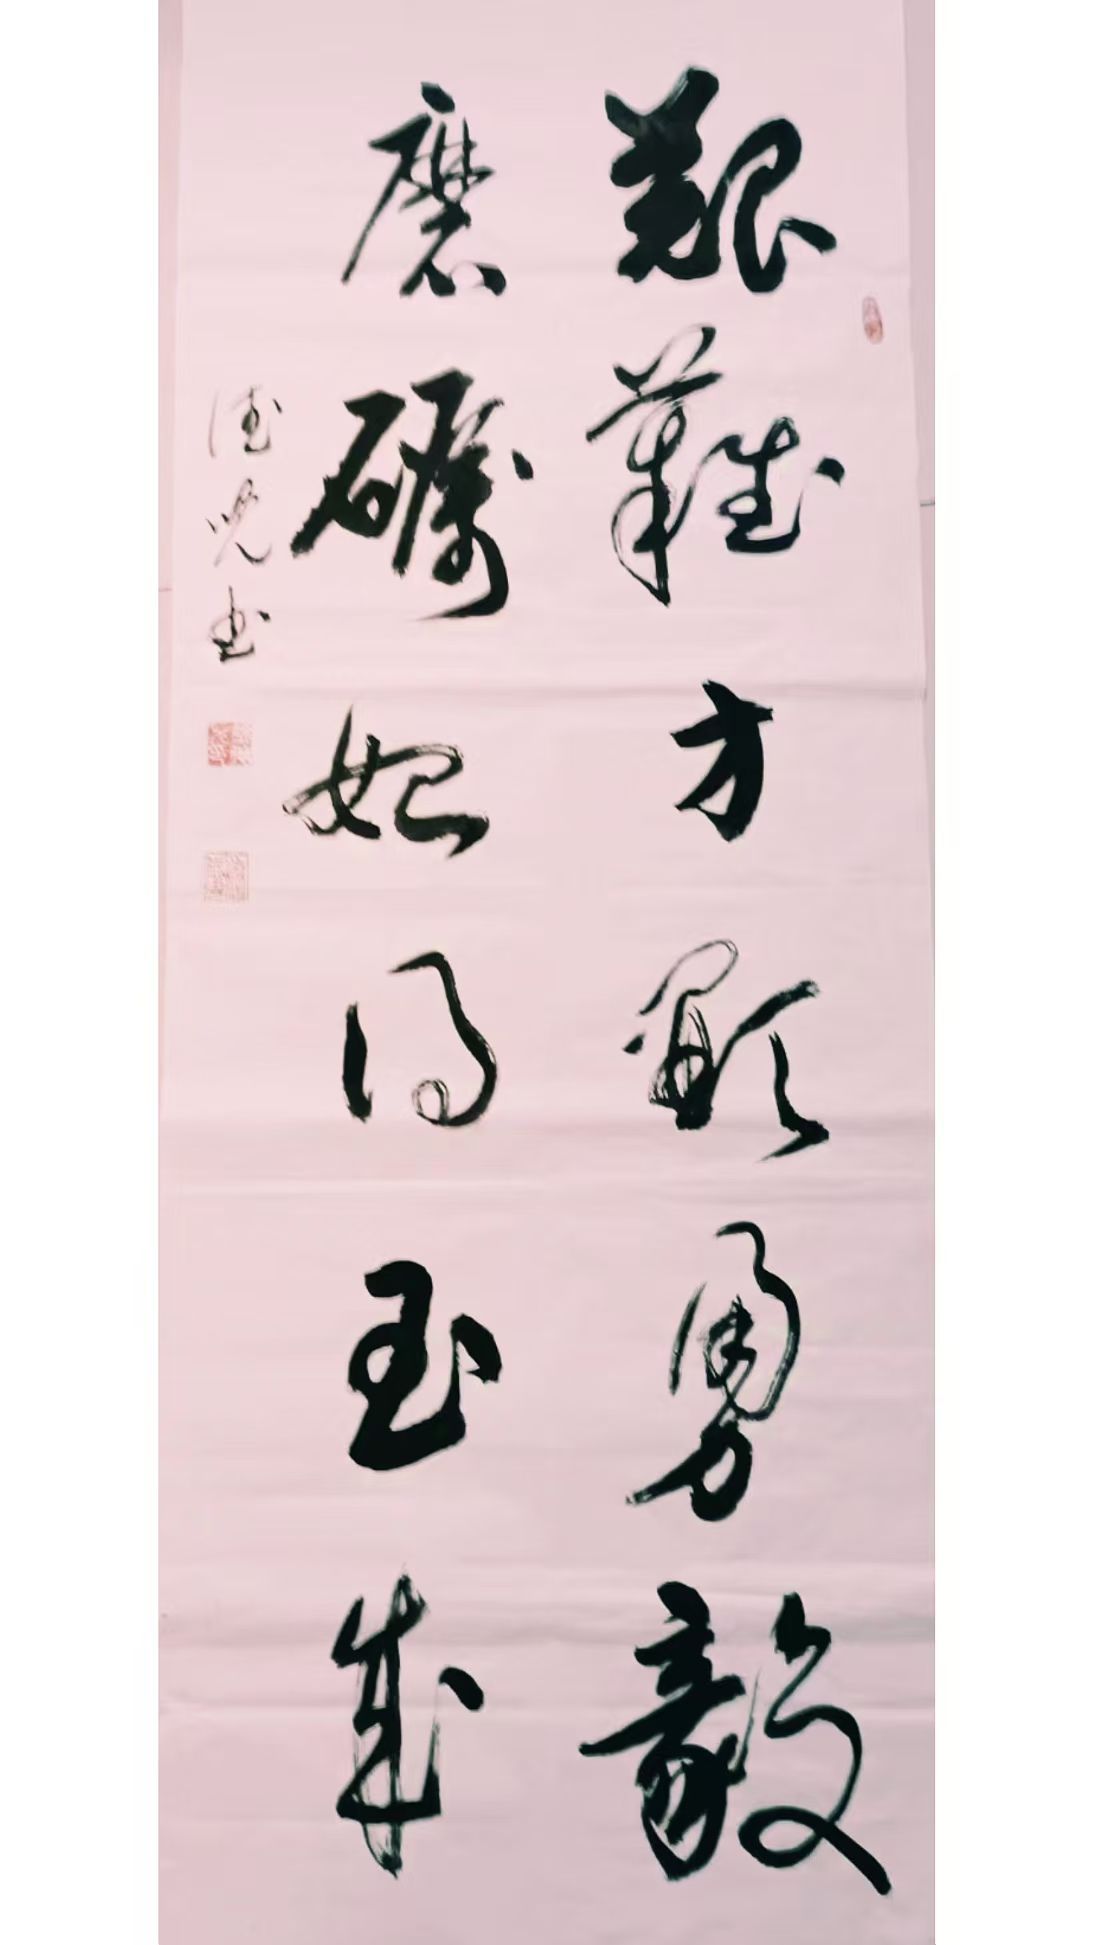 艱難方顯勇毅
磨礪始得玉成
德光书